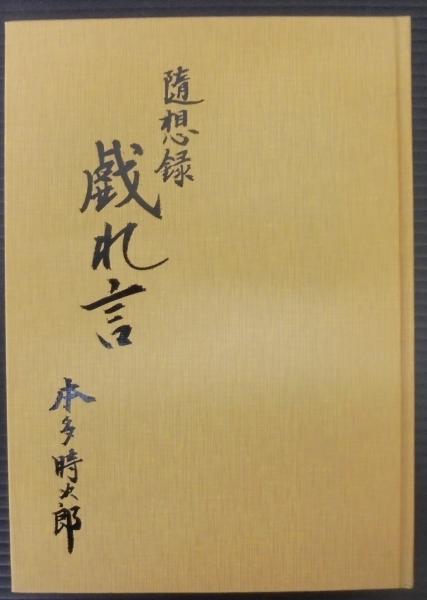 隨想録
戯れ言
本多時次郎